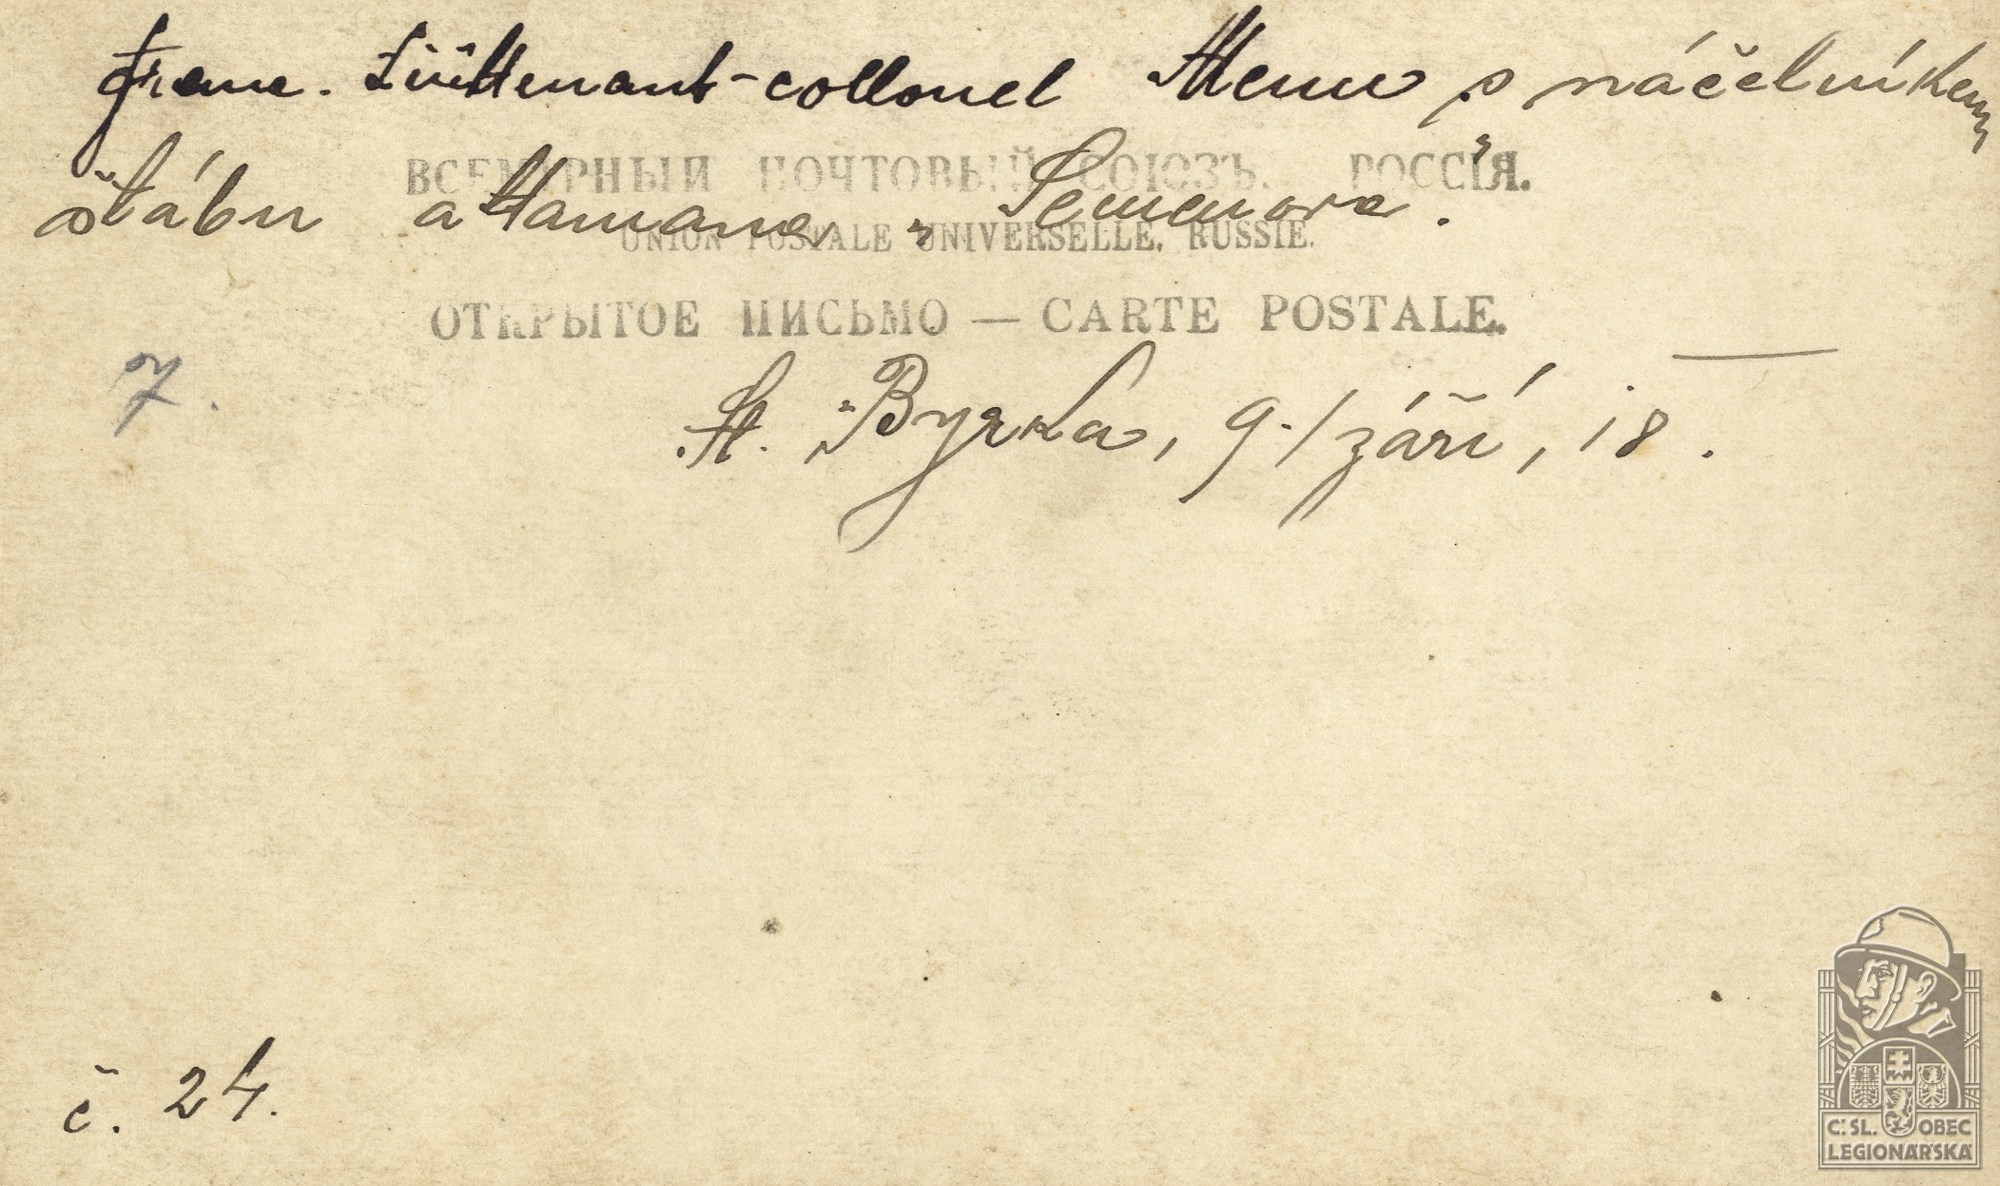 franc. Liüttenant-collonel Menu s náčelníkem
štábu attamana Semenova.
ВСЕМІРНЫЙ ПОЧТОВЫЙ СОЮЗЪ. РОССІЯ.
UNION POSTALE UNIVERSELLE. RUSSIE.
ОТКРЫТОЕ ПИСЬМО — CARTE POSTALE.
7.
St. Byrka, 9./září, 18.
č. 24.
Č.SL. OBEC
LEGIONÁŘSKÁ